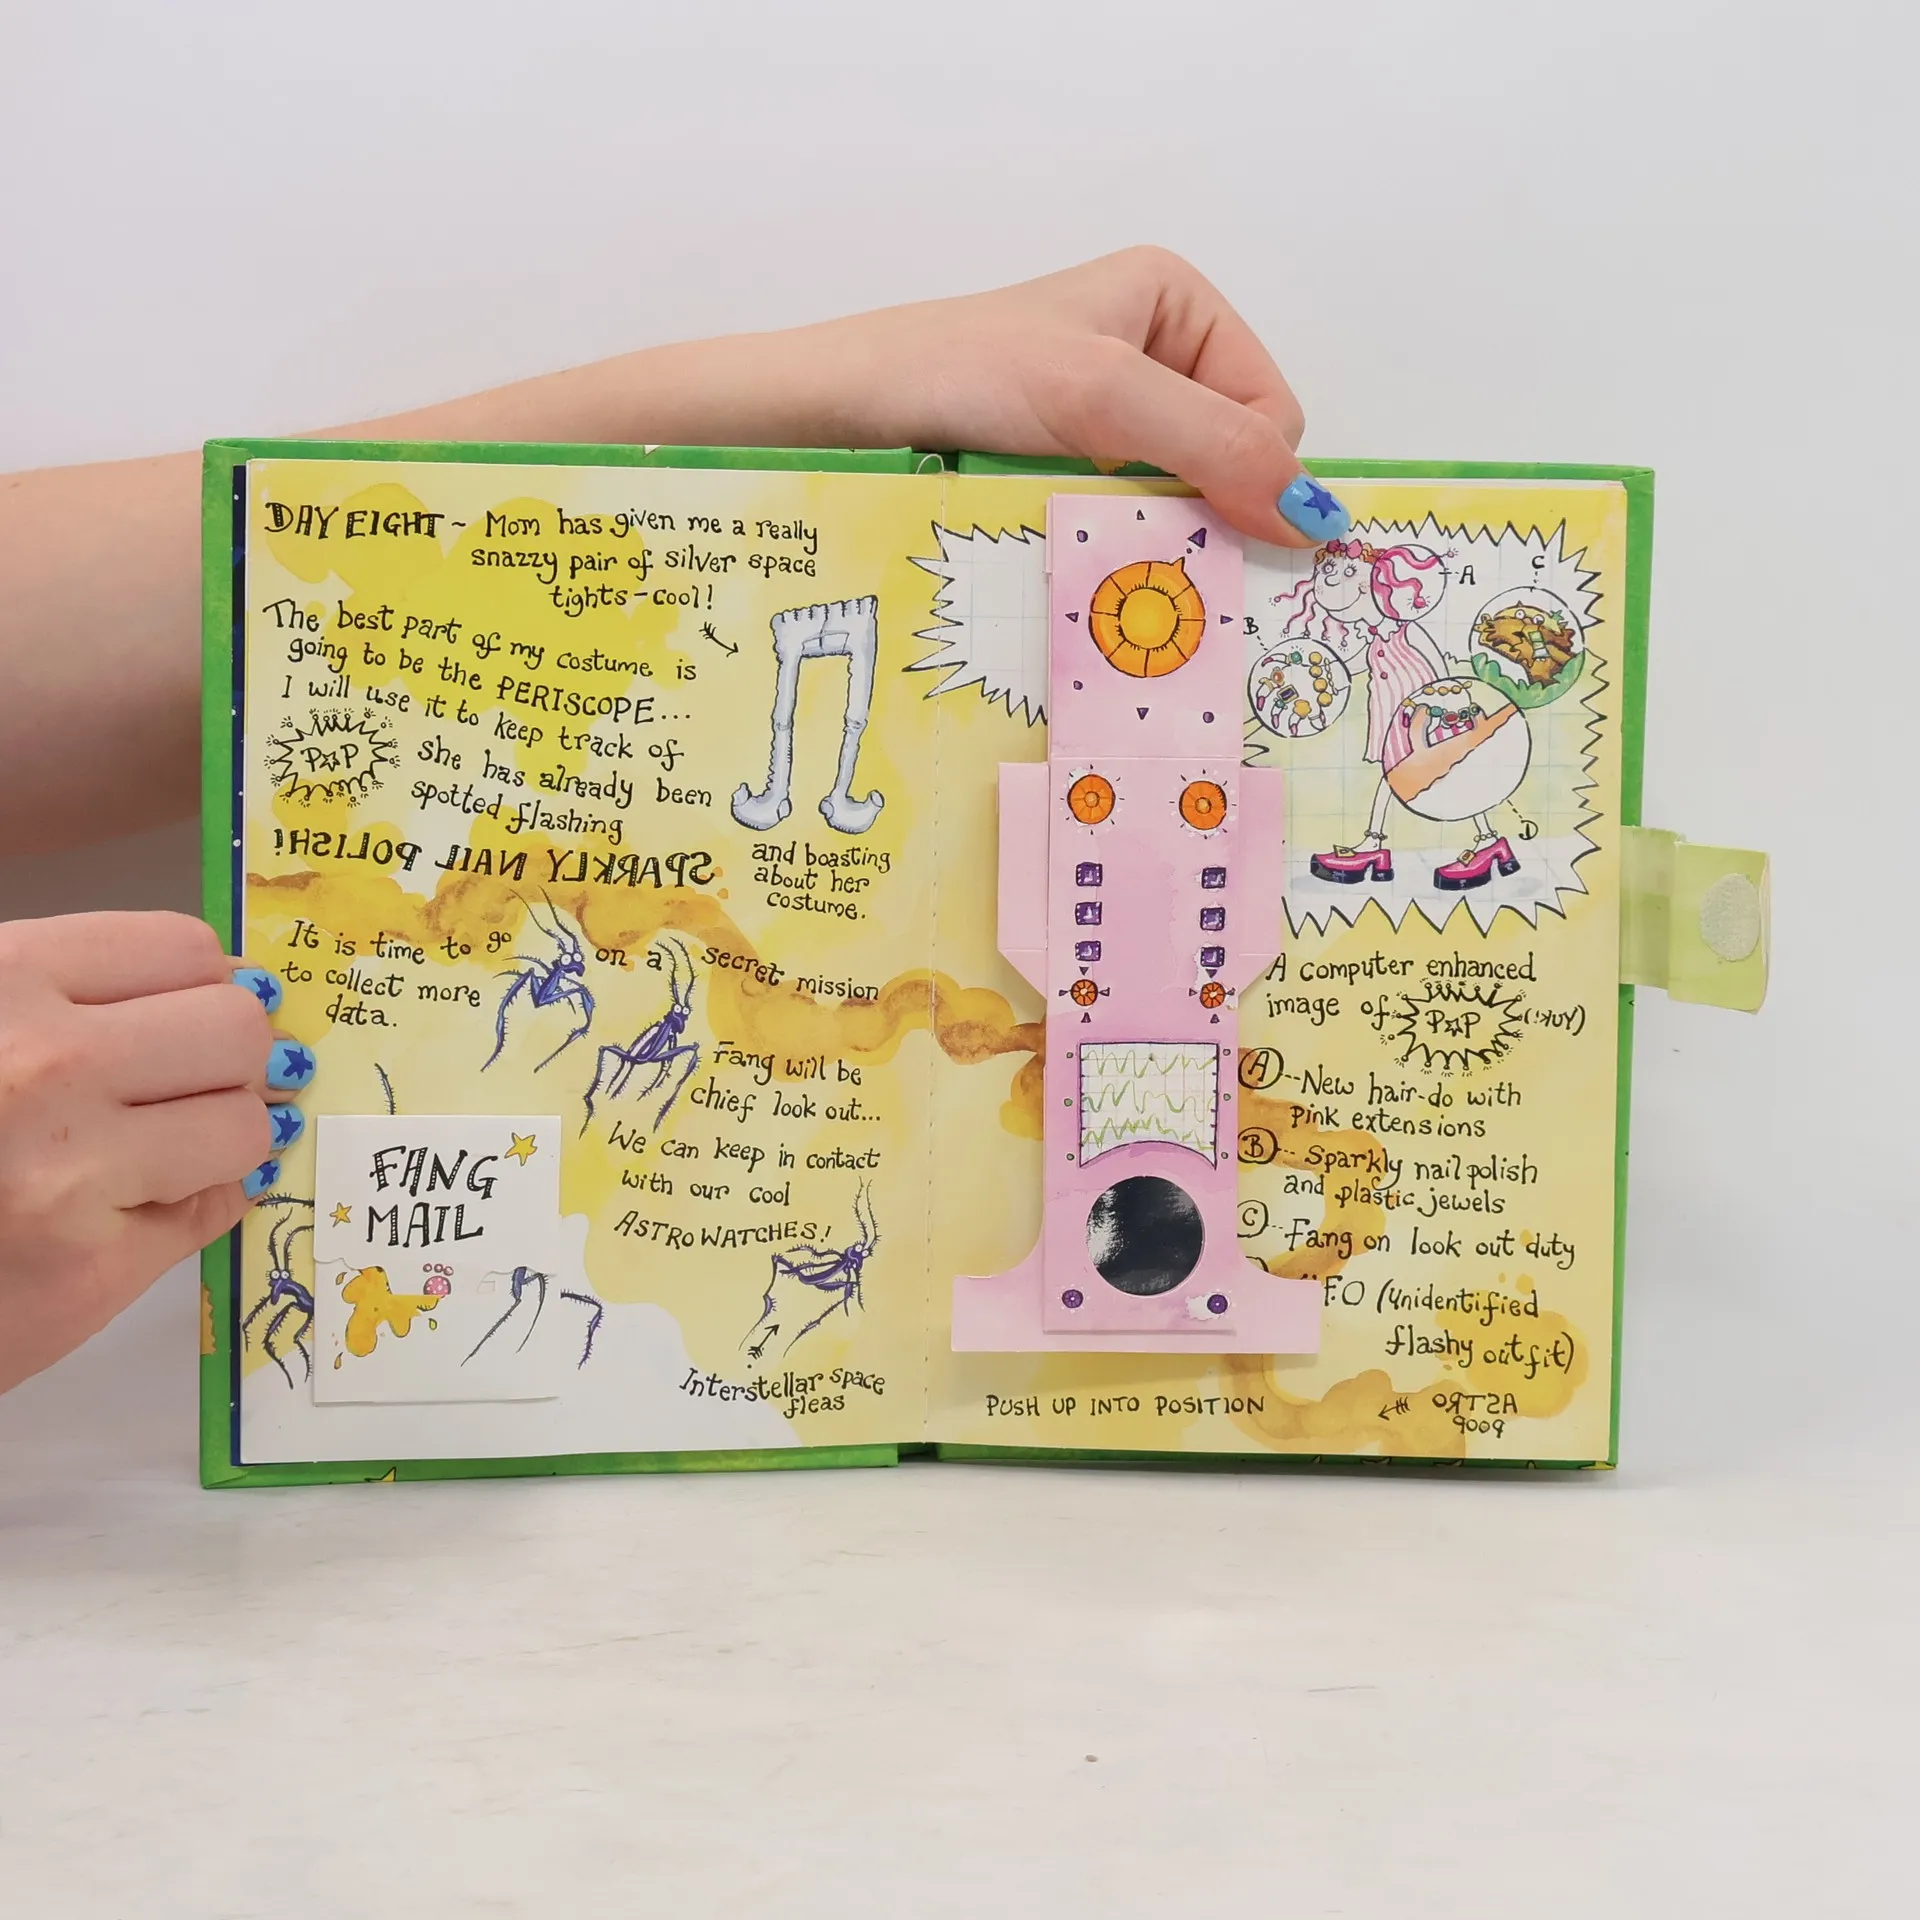 DAY EIGHT ~ Mom has given me a really
snazzy pair of silver space
tights - cool!
The best part of my costume is
going to be the PERISCOPE...
I will use it to keep track of
POP she has already been
spotted flashing
SPARKLY NAIL POLISH!
and boasting
about her
costume.
It is time to go on a secret mission
to collect more
data.
Fang will be
chief look out...
We can keep in contact
with our cool
ASTRO WATCHES!
FANG
MAIL
Interstellar space
fleas
A
B
C
D
A computer enhanced
image of POP (YUK!)
A -- New hair-do with
pink extensions
B -- Sparkly nail polish
and plastic jewels
C -- Fang on look out duty
F.O (unidentified
flashy outfit)
PUSH UP INTO POSITION
ASTRO
POOP